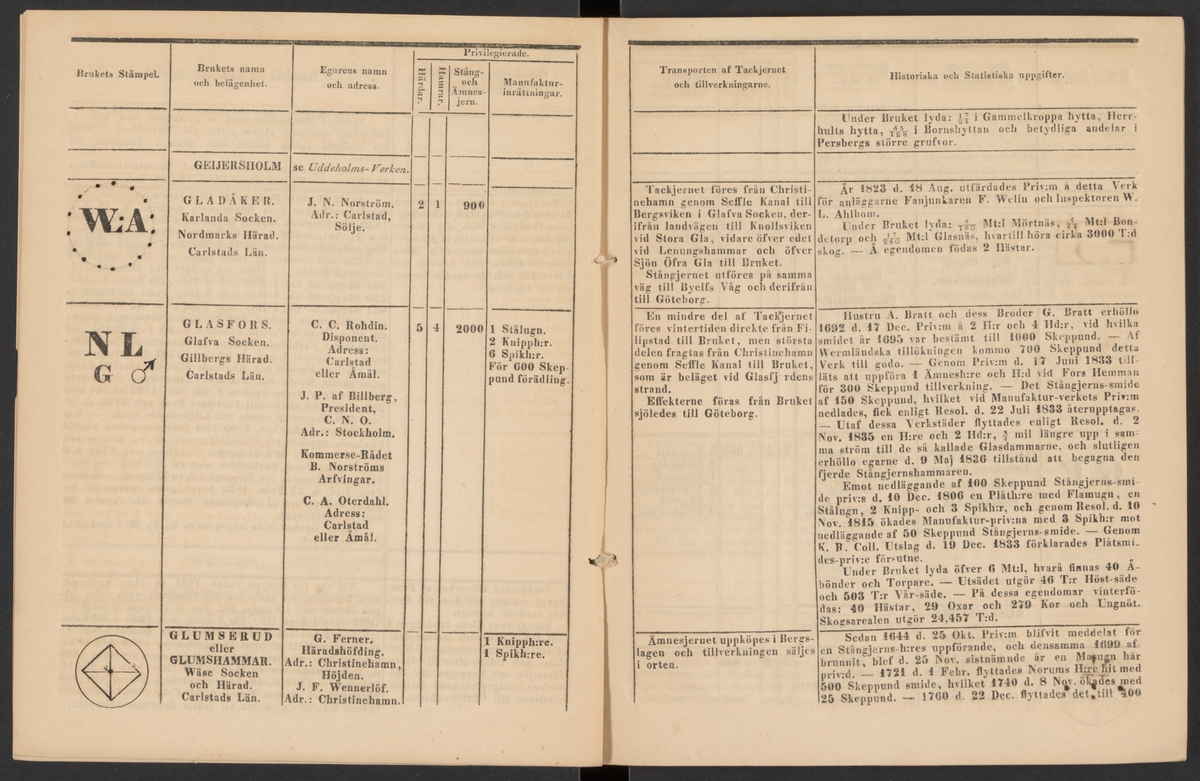 Privilegierade.
Brukets Stämpel.
Brukets namn
och belägenhet.
Egarens namn
och adress.
Härdar.
Hamrar.
Stång-
och
Ämnes-
jern.
Manufaktur-
inrättningar.
GEIJERSHOLM
se Uddeholms-Verken.
W:A
GLADÅKER.
Karlanda Socken.
Nordmarks Härad.
Carlstads Län.
J. N. Norström.
Adr.: Carlstad,
Sölje.
2 1 900
N L
G ♂
GLASFORS.
Glafva Socken.
Gillbergs Härad.
Carlstads Län.
C. C. Rohdin.
Disponent.
Adress:
Carlstad
eller Åmål.
J. P. af Billberg,
President,
C. N. O.
Adr.: Stockholm.
Kommerse-Rådet
B. Norströms
Arfvingar.
C. A. Oterdahl.
Adress:
Carlstad
eller Åmål.
5 4 2000
1 Stålugn.
2 Knipph:r.
6 Spikh:r.
För 600 Skep-
pund förädling.
GLUMSERUD
eller
GLUMSHAMMAR.
Wäse Socken
och Härad.
Carlstads Län.
G. Ferner.
Häradshöfding.
Adr.: Christinehamn,
Höjden.
J. F. Wennerlöf.
Adr.: Christinehamn.
1 Knipph:re.
1 Spikh:re.
Transporten af Tackjernet
och tillverkningarne.
Historiska och Statistiska uppgifter.
Under Bruket lyda: i Gammelkroppa hytta, Herr-
hults hytta, i Bornshyttan och betydliga andelar i
Persbergs större grufvor.
Tackjernet föres från Christi-
nehamn genom Seffle Kanal till
Bergsviken i Glafva Socken, der-
ifrån landvägen till Knollsviken
vid Stora Gla, vidare öfver edet
vid Lenungshammar och öfver
Sjön Öfra Gla till Bruket.
Stångjernet utföres på samma
väg till Byelfs Våg och derifrån
till Göteborg.
År 1823 d. 18 Aug. utfärdades Priv:m å detta Verk
för anläggarne Fanjunkaren F. Welin och Inspektoren W.
L. Ahlbom.
Under Bruket lyda: Mt:l Mörtnäs, Mt:l Bon-
detorp och Mt:l Glasnäs, hvartill höra cirka 3000 T:d
skog. — Å egendomen födas 2 Hästar.
En mindre del af Tackjernet
föres vintertiden direkte från Fi-
lipstad till Bruket, men största
delen fragtas från Christinehamn
genom Seffle Kanal till Bruket,
som är beläget vid Glasfj rdens
strand.
Effekterne föras från Bruket
sjöledes till Göteborg.
Hustru A. Bratt och dess Broder G. Bratt erhöllo
1692 d. 17 Dec. Priv:m å 2 H:r och 4 Hd:r, vid hvilka
smidet år 1695 var bestämt till 1000 Skeppund. — Af
Wermländska tillökningen kommo 700 Skeppund detta
Verk till godo. — Genom Priv:m d. 17 Juni 1833 till-
läts att uppföra 1 Ämnesh:re och H:d vid Fors Hemman
för 300 Skeppund tillverkning. — Det Stångjerns-smide
af 150 Skeppund, hvilket vid Manufaktur-verkets Priv:m
nedlades, fick enligt Resol. d. 22 Juli 1833 återupptagas.
— Utaf dessa Verkstäder flyttades enligt Resol. d. 2
Nov. 1835 en H:re och 2 Hd:r, ¾ mil längre upp i sam-
ma ström till de så kallade Glasdammarne, och slutligen
erhöllo egarne d. 9 Maj 1836 tillstånd att begagna den
fjerde Stångjernshammaren.
Emot nedläggande af 100 Skeppund Stångjerns-smi-
de priv:s d. 10 Dec. 1806 en Plåth:re med Flamugn, en
Stålugn, 2 Knipp- och 3 Spikh:r, och genom Resol. d. 10
Nov. 1815 ökades Manufaktur-priv:na med 3 Spikh:r mot
nedläggande af 50 Skeppund Stångjerns-smide. — Genom
K. B. Coll. Utslag d. 19 Dec. 1833 förklarades Plåtsmi-
des-priv:e försutne.
Under Bruket lyda öfver 6 Mt:l, hvarå finnas 40 Å-
bönder och Torpare. — Utsädet utgör 46 T:r Höst-säde
och 503 T:r Vår-säde. — På dessa egendomar vinterfö-
das: 40 Hästar, 29 Oxar och 279 Kor och Ungnöt.
Skogsarealen utgör 24,457 T:d.
Ämnesjernet uppköpes i Bergs-
lagen och tillverkningen säljes
i orten.
Sedan 1644 d. 25 Okt. Priv:m blifvit meddelat för
en Stångjerns-h:res uppförande, och densamma 1699 af-
brunnit, blef d. 25 Nov. sistnämnde år en Masugn här
priv:d. — 1721 d. 1 Febr. flyttades Norums H:re hit med
500 Skeppund smide, hvilket 1740 d. 8 Nov. ökades med
25 Skeppund. — 1760 d. 22 Dec. flyttades det till 400